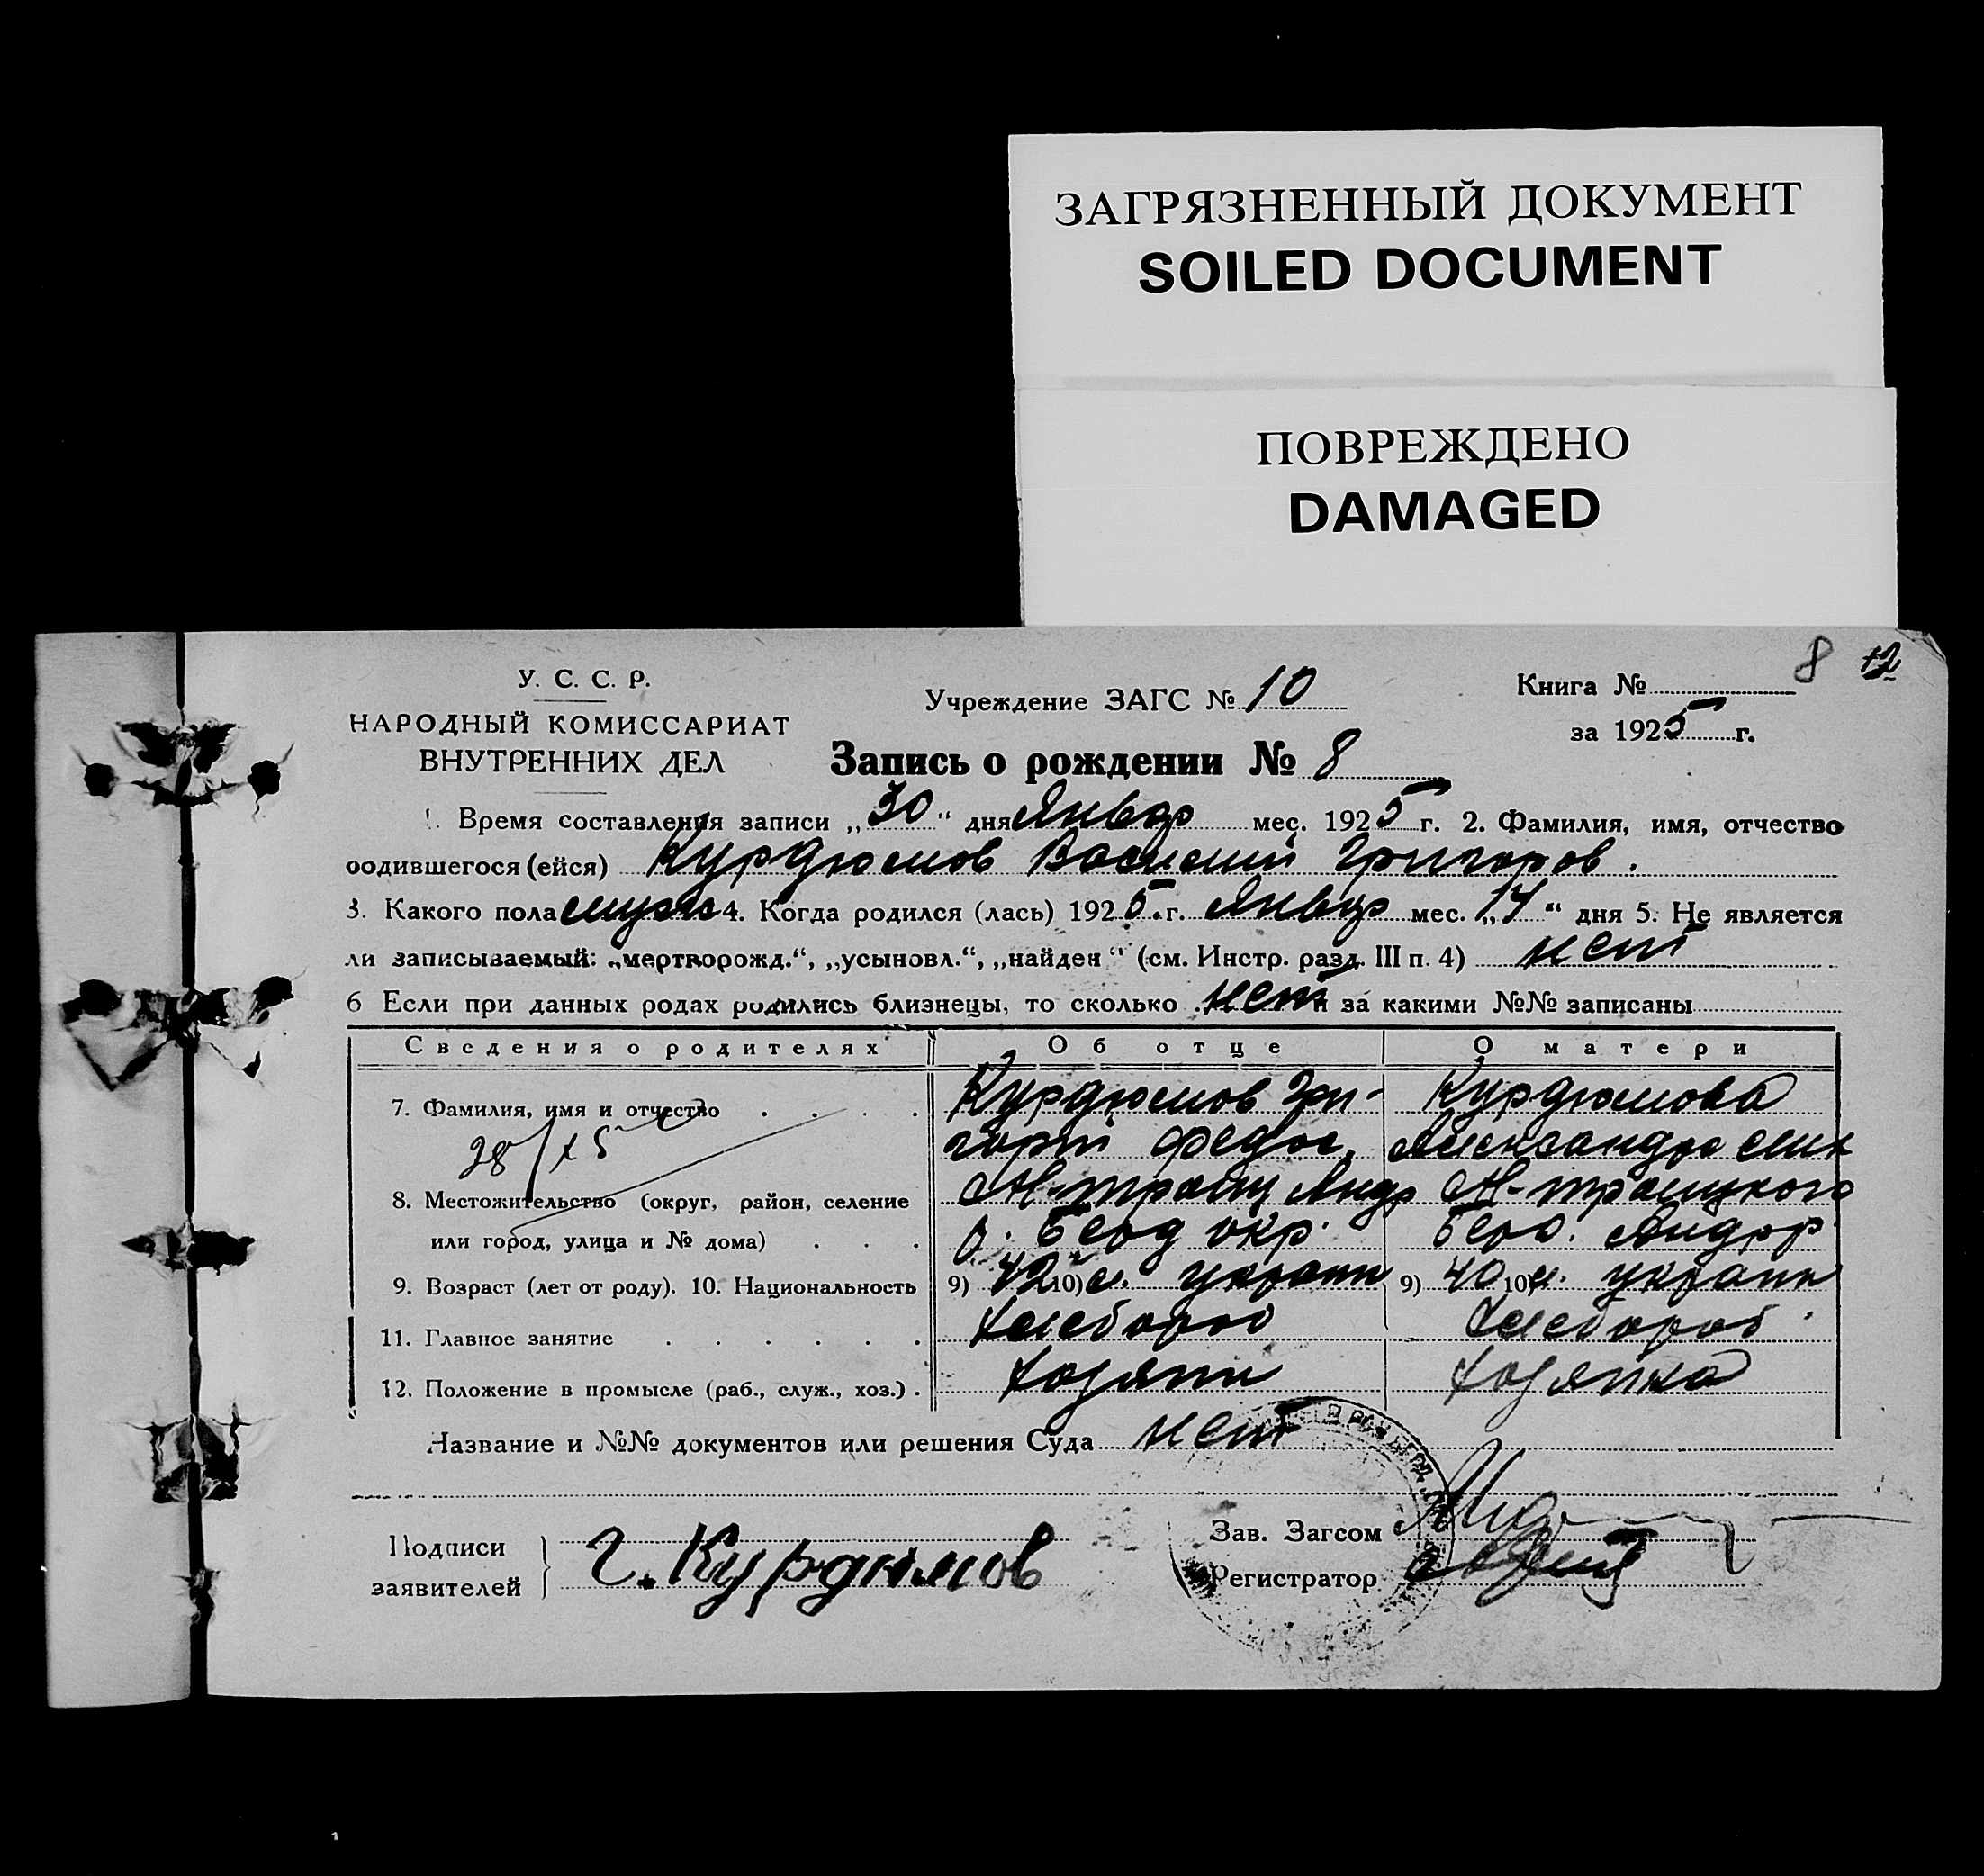 ЗАГРЯЗНЕННЫЙ ДОКУМЕНТ
SOILED DOCUMENT
ПОВРЕЖДЕНО
DAMAGED
8 12
У. С. С. Р.
НАРОДНЫЙ КОМИССАРИАТ
ВНУТРЕННИХ ДЕЛ
Учреждение ЗАГС № 10
Книга №
за 1925 г.
Запись о рождении № 8
1. Время составления записи „30“ дня Январ мес. 1925 г. 2. Фамилия, имя, отчество
родившегося (ейся) Курдюмов Василий Григоров.
3. Какого пола мужс 4. Когда родился (лась) 1925 г. Январ мес. „14“ дня 5. Не является
ли записываемый: „мертворожд.“, „усыновл.“, „найден“ (см. Инстр. разд. III п. 4) нет
6 Если при данных родах родились близнецы, то сколько нет и за какими №№ записаны
Сведения о родителях Об отце О матери
7. Фамилия, имя и отчество Курдюмов Гри- Курдюмова
горий Федос. Александра
8. Местожительство (округ, район, селение
или город, улица и № дома) окр.
9. Возраст (лет от роду). 10. Национальность 9) 42 10) л. украин 9) 40 10) л. украин
11. Главное занятие Хлебороб Хлебороб
12. Положение в промысле (раб., служ., хоз.) Хозяин Хозяйка
Название и №№ документов или решения Суда нет
Подписи
заявителей
Г. Курдюмов
Зав. Загсом
Регистратор